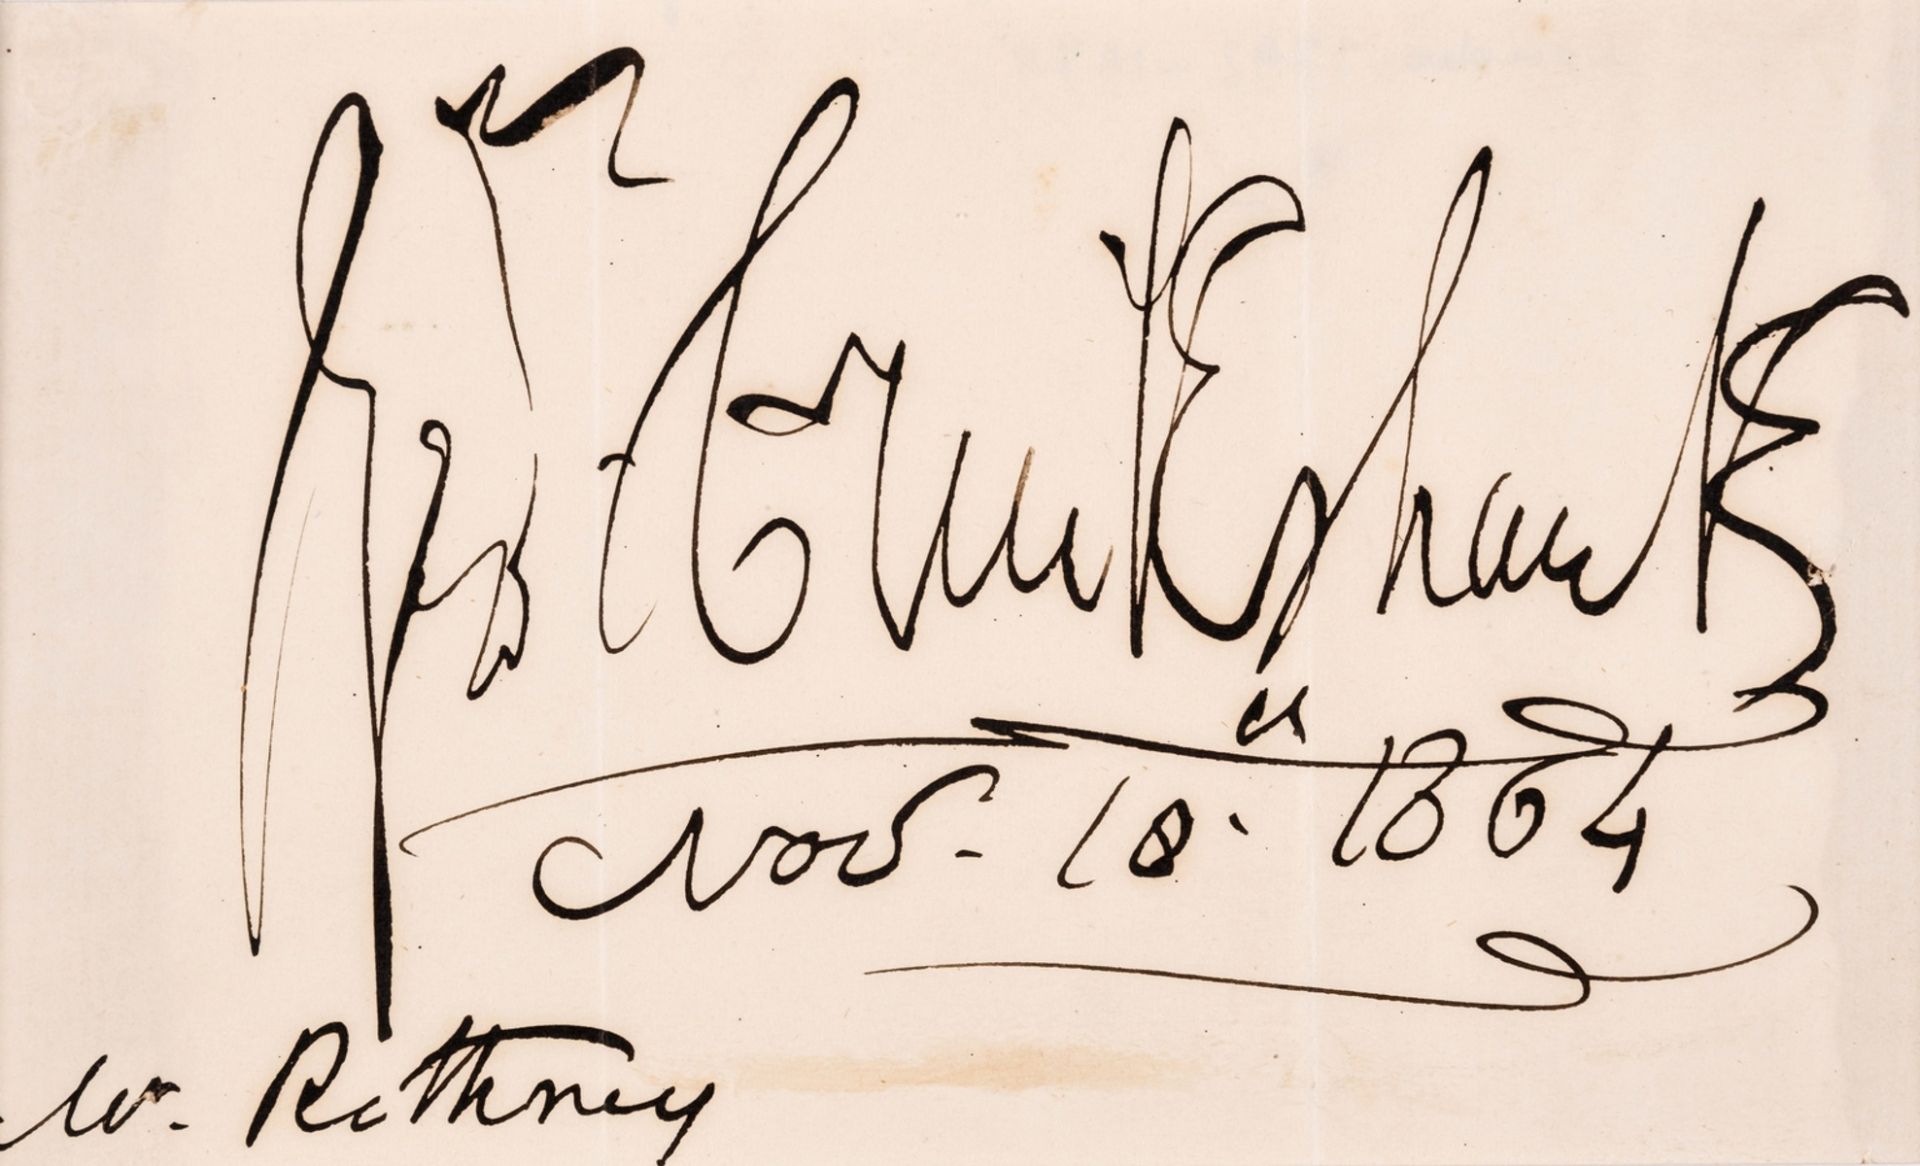 Geo Cruikshank
Nov. 18. 1864
Mr. Rothney